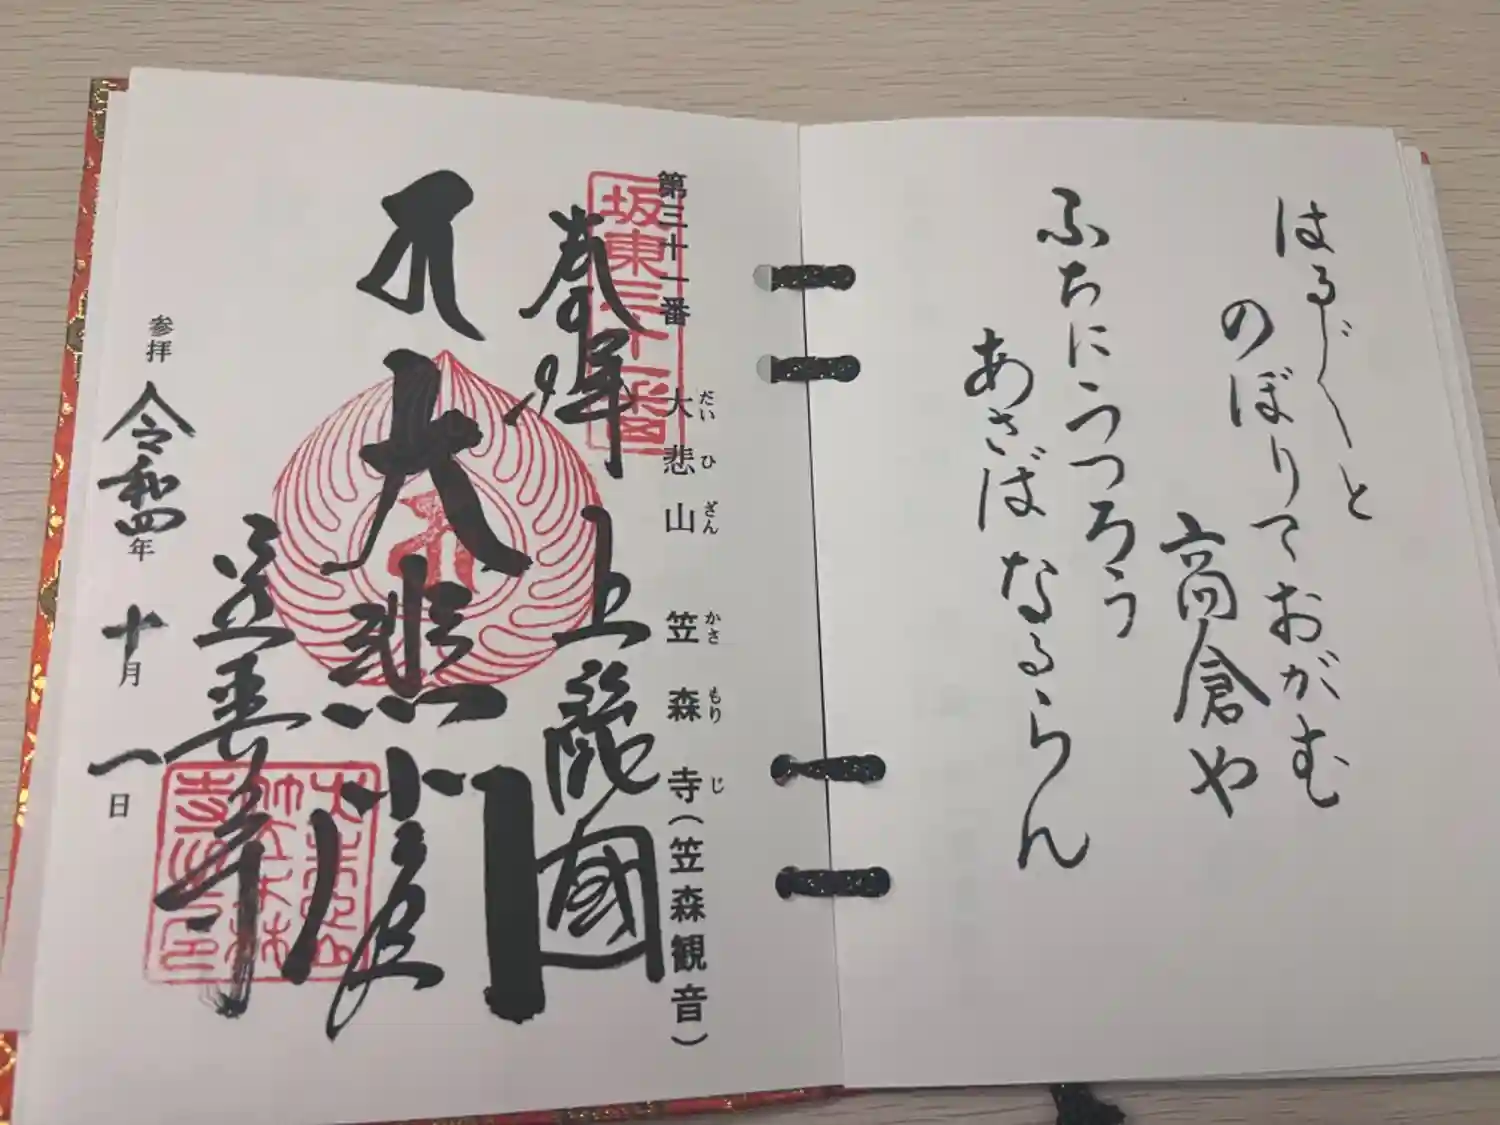 はる〲と
のぼりておがむ
高倉や
ふちにうつろう
あさばなるらん
第三十一番 大悲山 笠森寺(笠森観音)
だいひざん かさもりじ
坂東三十一番
奉拝
上総國
大悲閣
笠森寺
参拝 令和四年十月一日